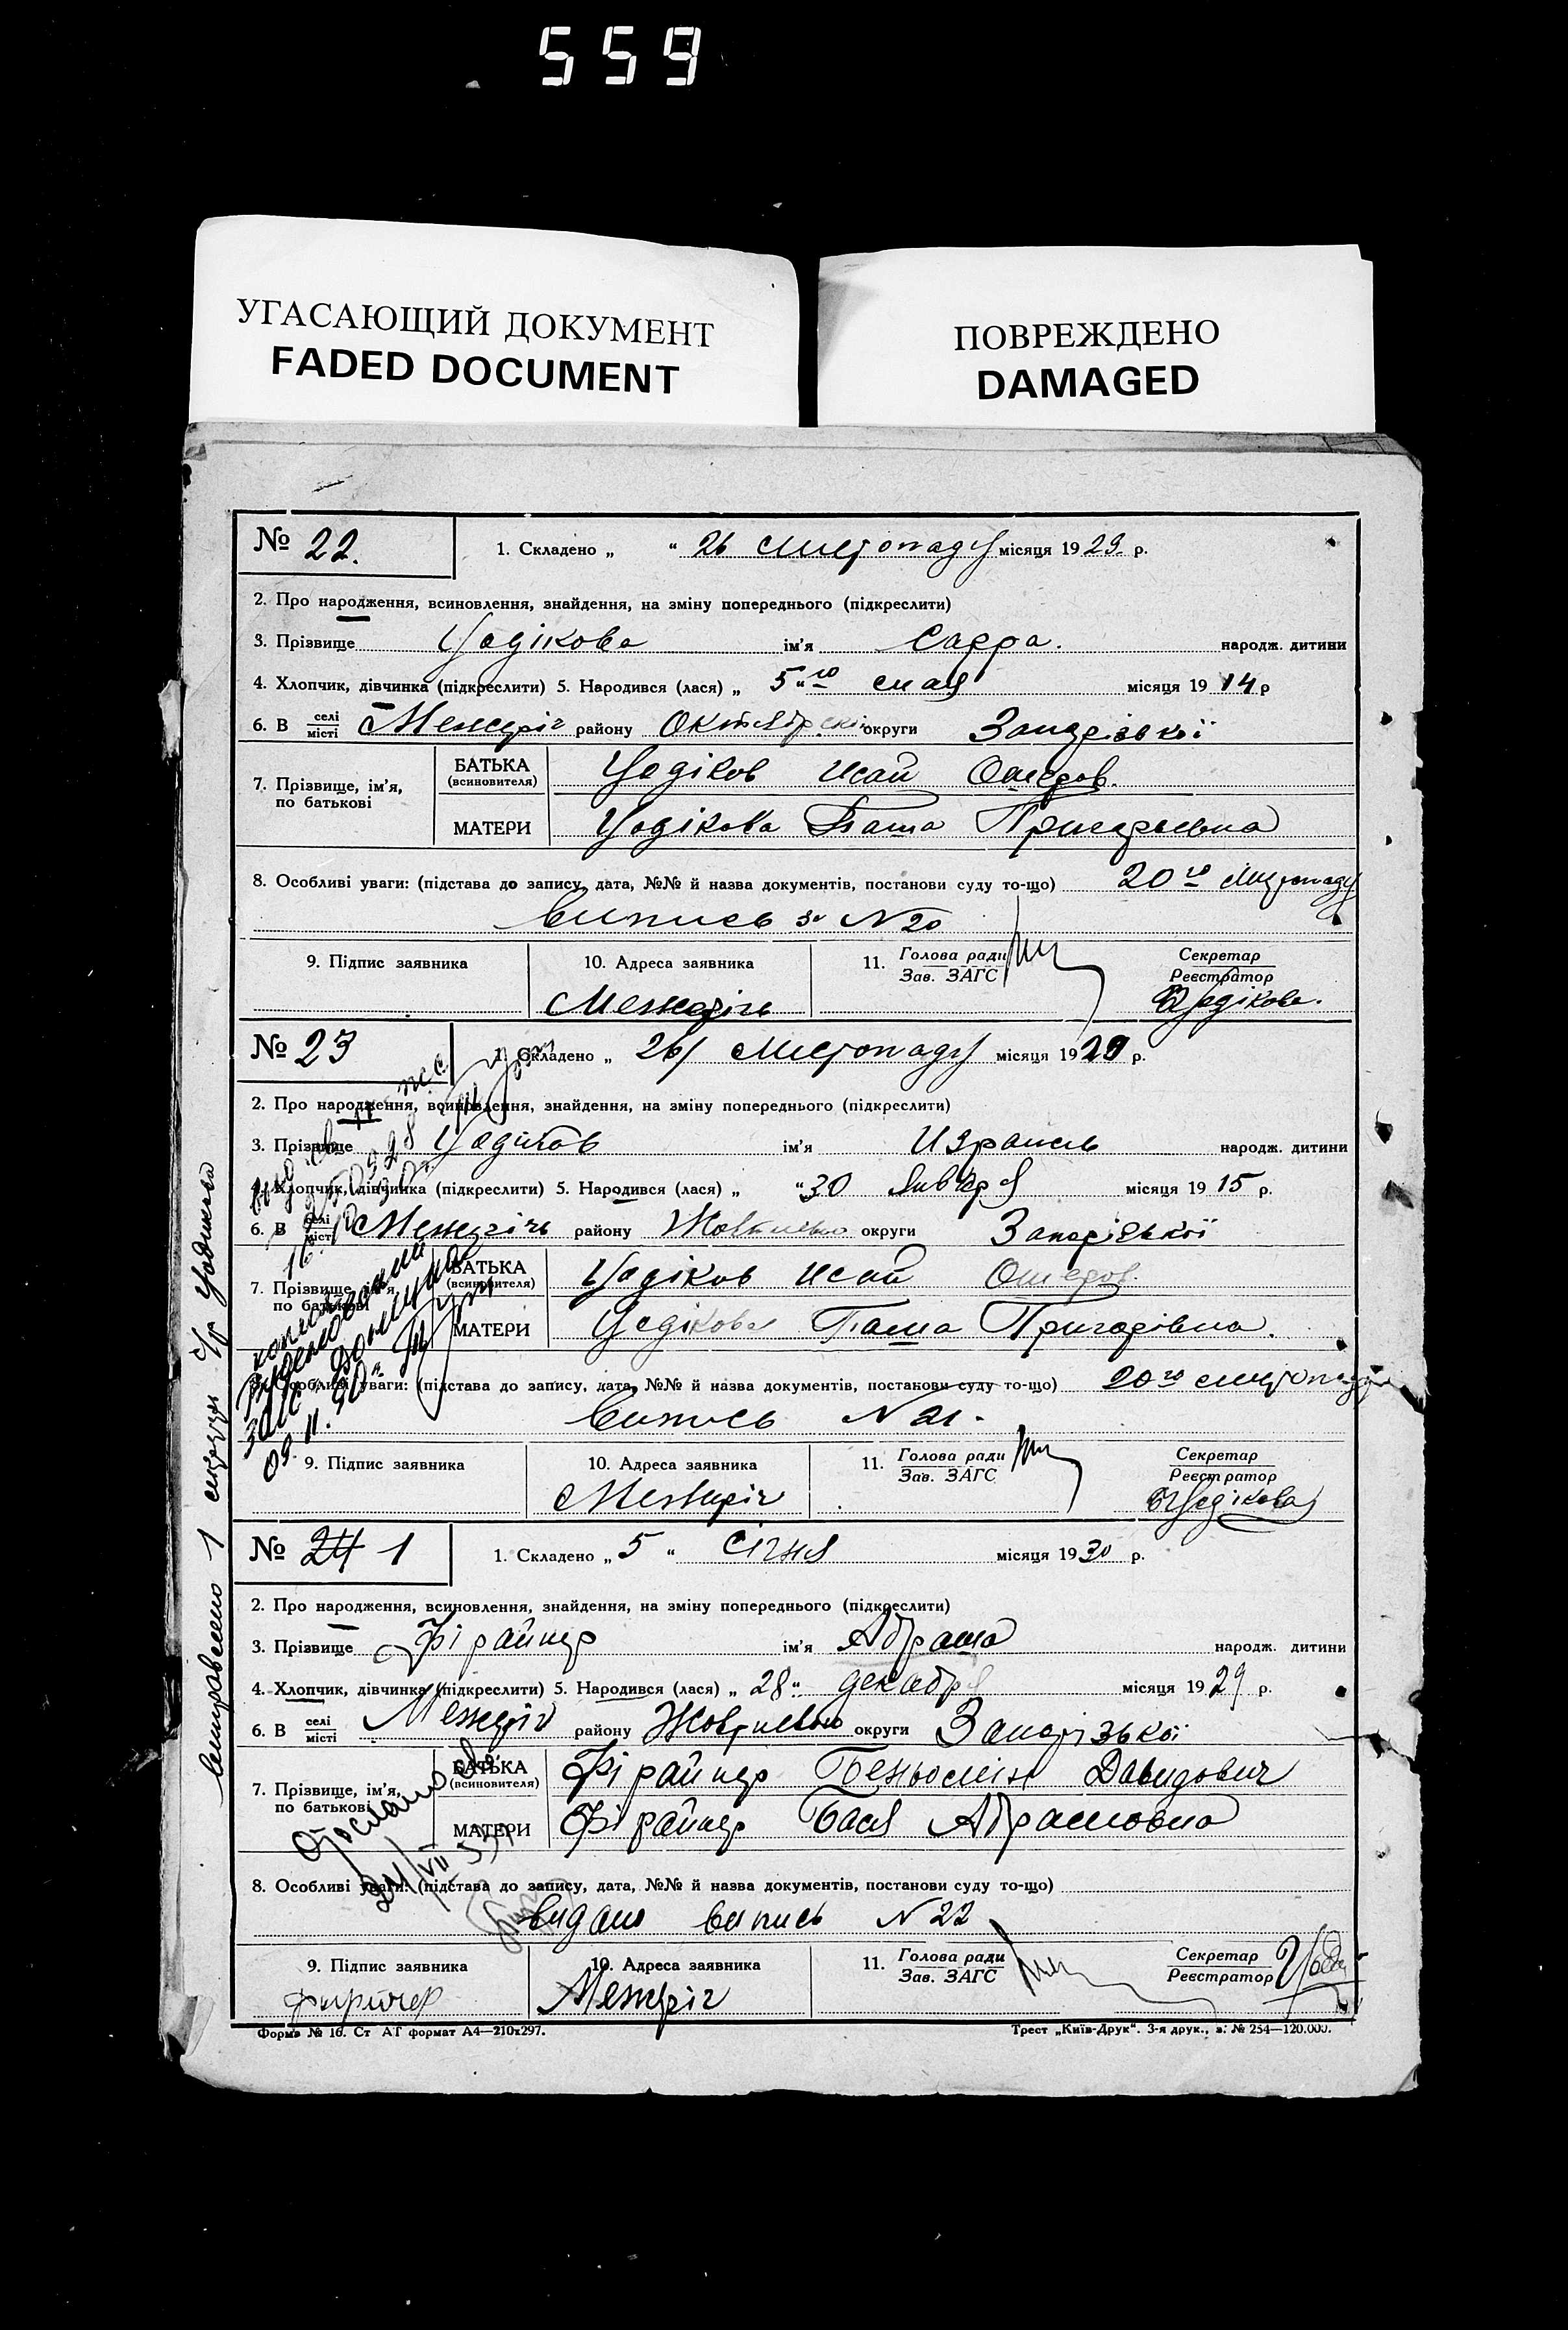 559
УГАСАЮЩИЙ ДОКУМЕНТ
FADED DOCUMENT
ПОВРЕЖДЕНО
DAMAGED
№ 22.
1. Складено „ “ 26 листопаду місяця 1929 р.
2. Про народження, всиновлення, знайдення, на зміну попереднього (підкреслити)
3. Прізвище Цодікова ім'я Сарра. народж. дитини
4. Хлопчик, дівчинка (підкреслити) 5. Народився (лася) „ 5“го мая місяця 1914 р
6. В селі місті Межиріч району округи Запорізької
7. Прізвище, ім'я, по батькові
БАТЬКА (всиновителя) Цодіков Исай Ошеров.
МАТЕРИ Цодікова Паша
8. Особливі уваги: (підстава до запису, дата, №№ й назва документів, постанови суду то-що) 20го листопаду
Випись за N 20
9. Підпис заявника
10. Адреса заявника
Межиріч
11. Голова ради
Зав. ЗАГС
Секретар
Реєстратор
Цодікова.
№ 23
1. Складено „ 26/ листопаду місяця 1929 р.
2. Про народження, всиновлення, знайдення, на зміну попереднього (підкреслити)
3. Прізвище Цодіков ім'я Израиль народж. дитини
4. Хлопчик, дівчинка (підкреслити) 5. Народився (лася) „ “30 Января місяця 1915 р.
6. В селі місті Межиріч району округи Запорізької
7. Прізвище, ім'я, по батькові
БАТЬКА (всиновителя) Цодіков Исай Ошеров.
МАТЕРИ Цодікова Паша Григорівна.
8. Особливі уваги: (підстава до запису, дата, №№ й назва документів, постанови суду то-що) 20го листопаду
Випись N 21.
9. Підпис заявника
10. Адреса заявника
Межиріч
11. Голова ради
Зав. ЗАГС
Секретар
Реєстратор
Цодікова
№ 24 1
1. Складено „ 5 “ Січня місяця 1930 р.
2. Про народження, всиновлення, знайдення, на зміну попереднього (підкреслити)
3. Прізвище Фірайнер ім'я Абраша народж. дитини
4. Хлопчик, дівчинка (підкреслити) 5. Народився (лася) „ 28“ декабря місяця 1929 р.
6. В селі місті Межиріч району округи Запорізької
7. Прізвище, ім'я, по батькові
БАТЬКА (всиновителя) Фірайнер Беньомін Давидович
МАТЕРИ Фірайнер Бася Абрамовна
8. Особливі уваги: (підстава до запису, дата, №№ й назва документів, постанови суду то-що)
видано випись N 22
9. Підпис заявника
10. Адреса заявника
Межиріч
11. Голова ради
Зав. ЗАГС
Секретар
Реєстратор
Форма № 16. Ст АГ формат А4—210х297.
Трест „Київ-Друк“. 3-я друк., з. № 254—120.000.